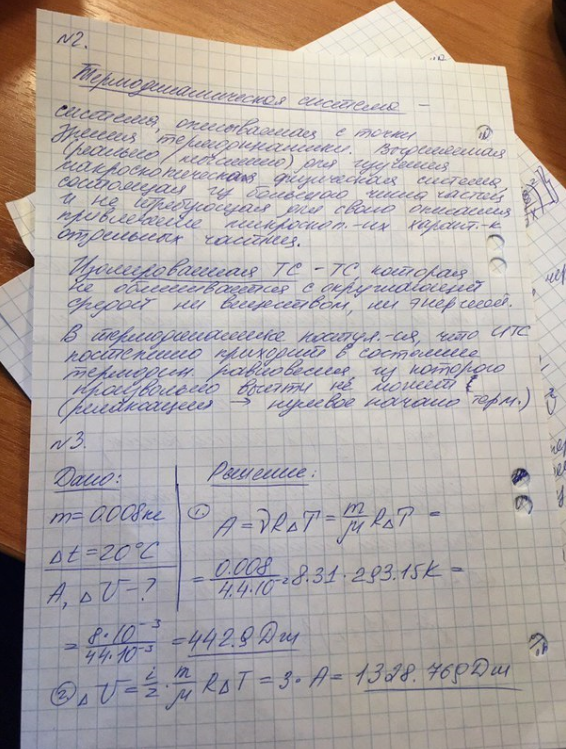 №2.
Термодинамическая система –
система, описываемая с точки
зрения термодинамики. Выделяемая
(реально/мысленно) для изучения
макроскопическая физическая система,
состоящая из большого числа частиц
и не требующая для своего описания
привлечения микроскоп.-их характ.-к
отдельных частиц.
Изолированная ТС – ТС, которая
не обменивается с окружающей
средой ни веществом, ни энергией.
В термодинамике постул.-ся, что ИТС
постепенно приходит в состояние
термодин. равновесия, из которого
произвольно выйти не может
(релаксация → нулевое начало терм.)
№3.
Дано:
m = 0.008кг
Δt = 20°C
A, ΔU – ?
Решение:
① A = νRΔT = m/μ RΔT =
= 0.008/4.4·10 · 8.31 · 293.15K =
= 8·10⁻³/44·10⁻³ = 442.9 Дж
② ΔU = i/2 · m/μ RΔT = 3·A = 1328.769 Дж